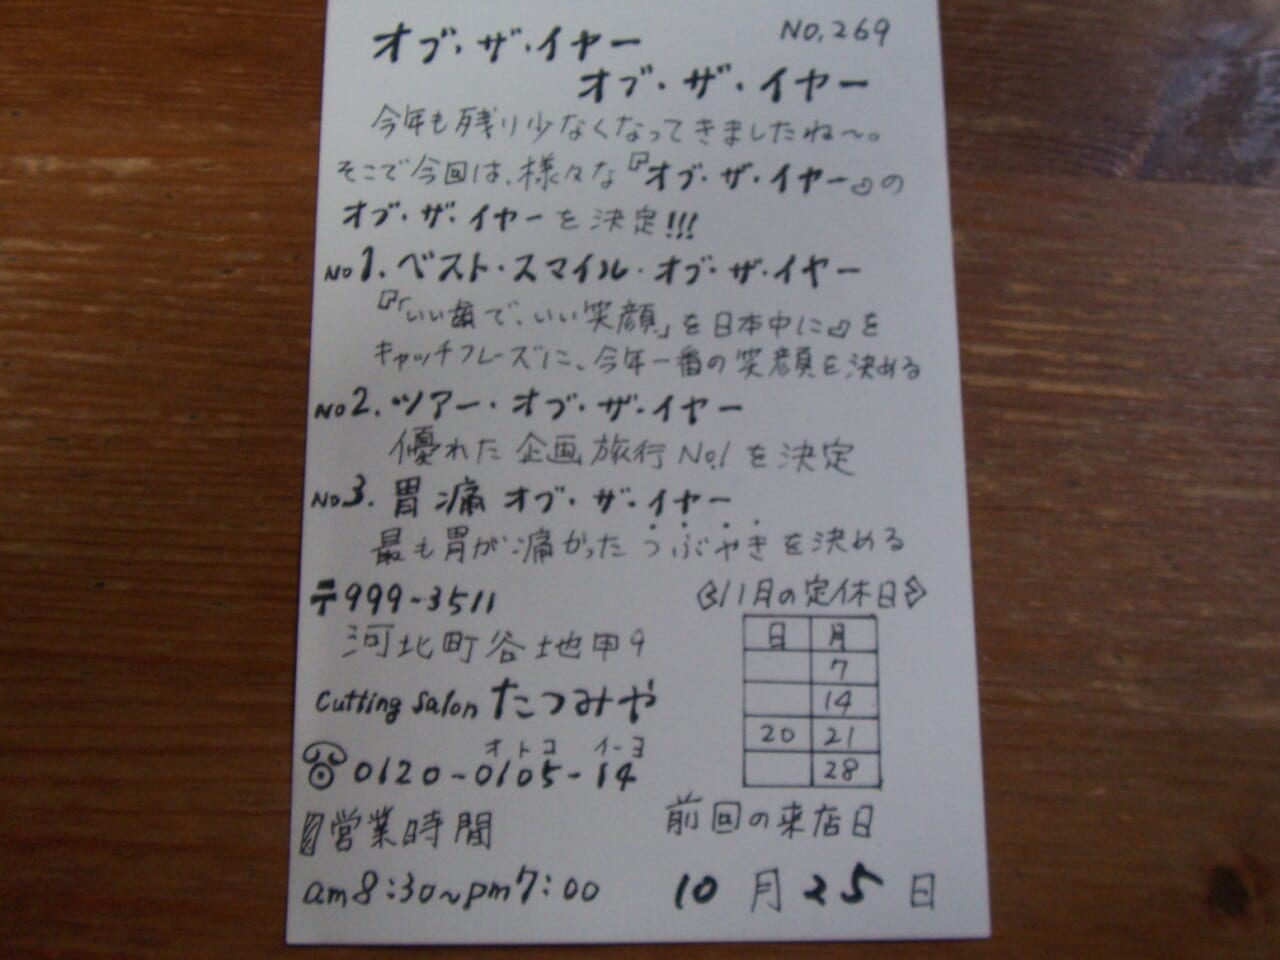 オブ・ザ・イヤー
NO.269
オブ・ザ・イヤー
今年も残り少なくなってきましたね～。
そこで今回は、様々な『オブ・ザ・イヤー』の
オブ・ザ・イヤーを決定!!!
NO1.ベスト・スマイル・オブ・ザ・イヤー
『「いい歯で、いい笑顔」を日本中に』を
キャッチフレーズに、今年一番の笑顔を決める
NO2.ツアー・オブ・ザ・イヤー
優れた企画旅行No.1を決定
NO3.胃痛オブ・ザ・イヤー
最も胃が痛かったつぶやきを決める
〒999-3511
河北町谷地甲9
Cutting Salon たつみや
オトコ イーヨ
☎0120-0105-14
営業時間
am8:30~pm7:00
《11月の定休日》
日 月
7
14
20 21
28
前回の来店日
10月25日